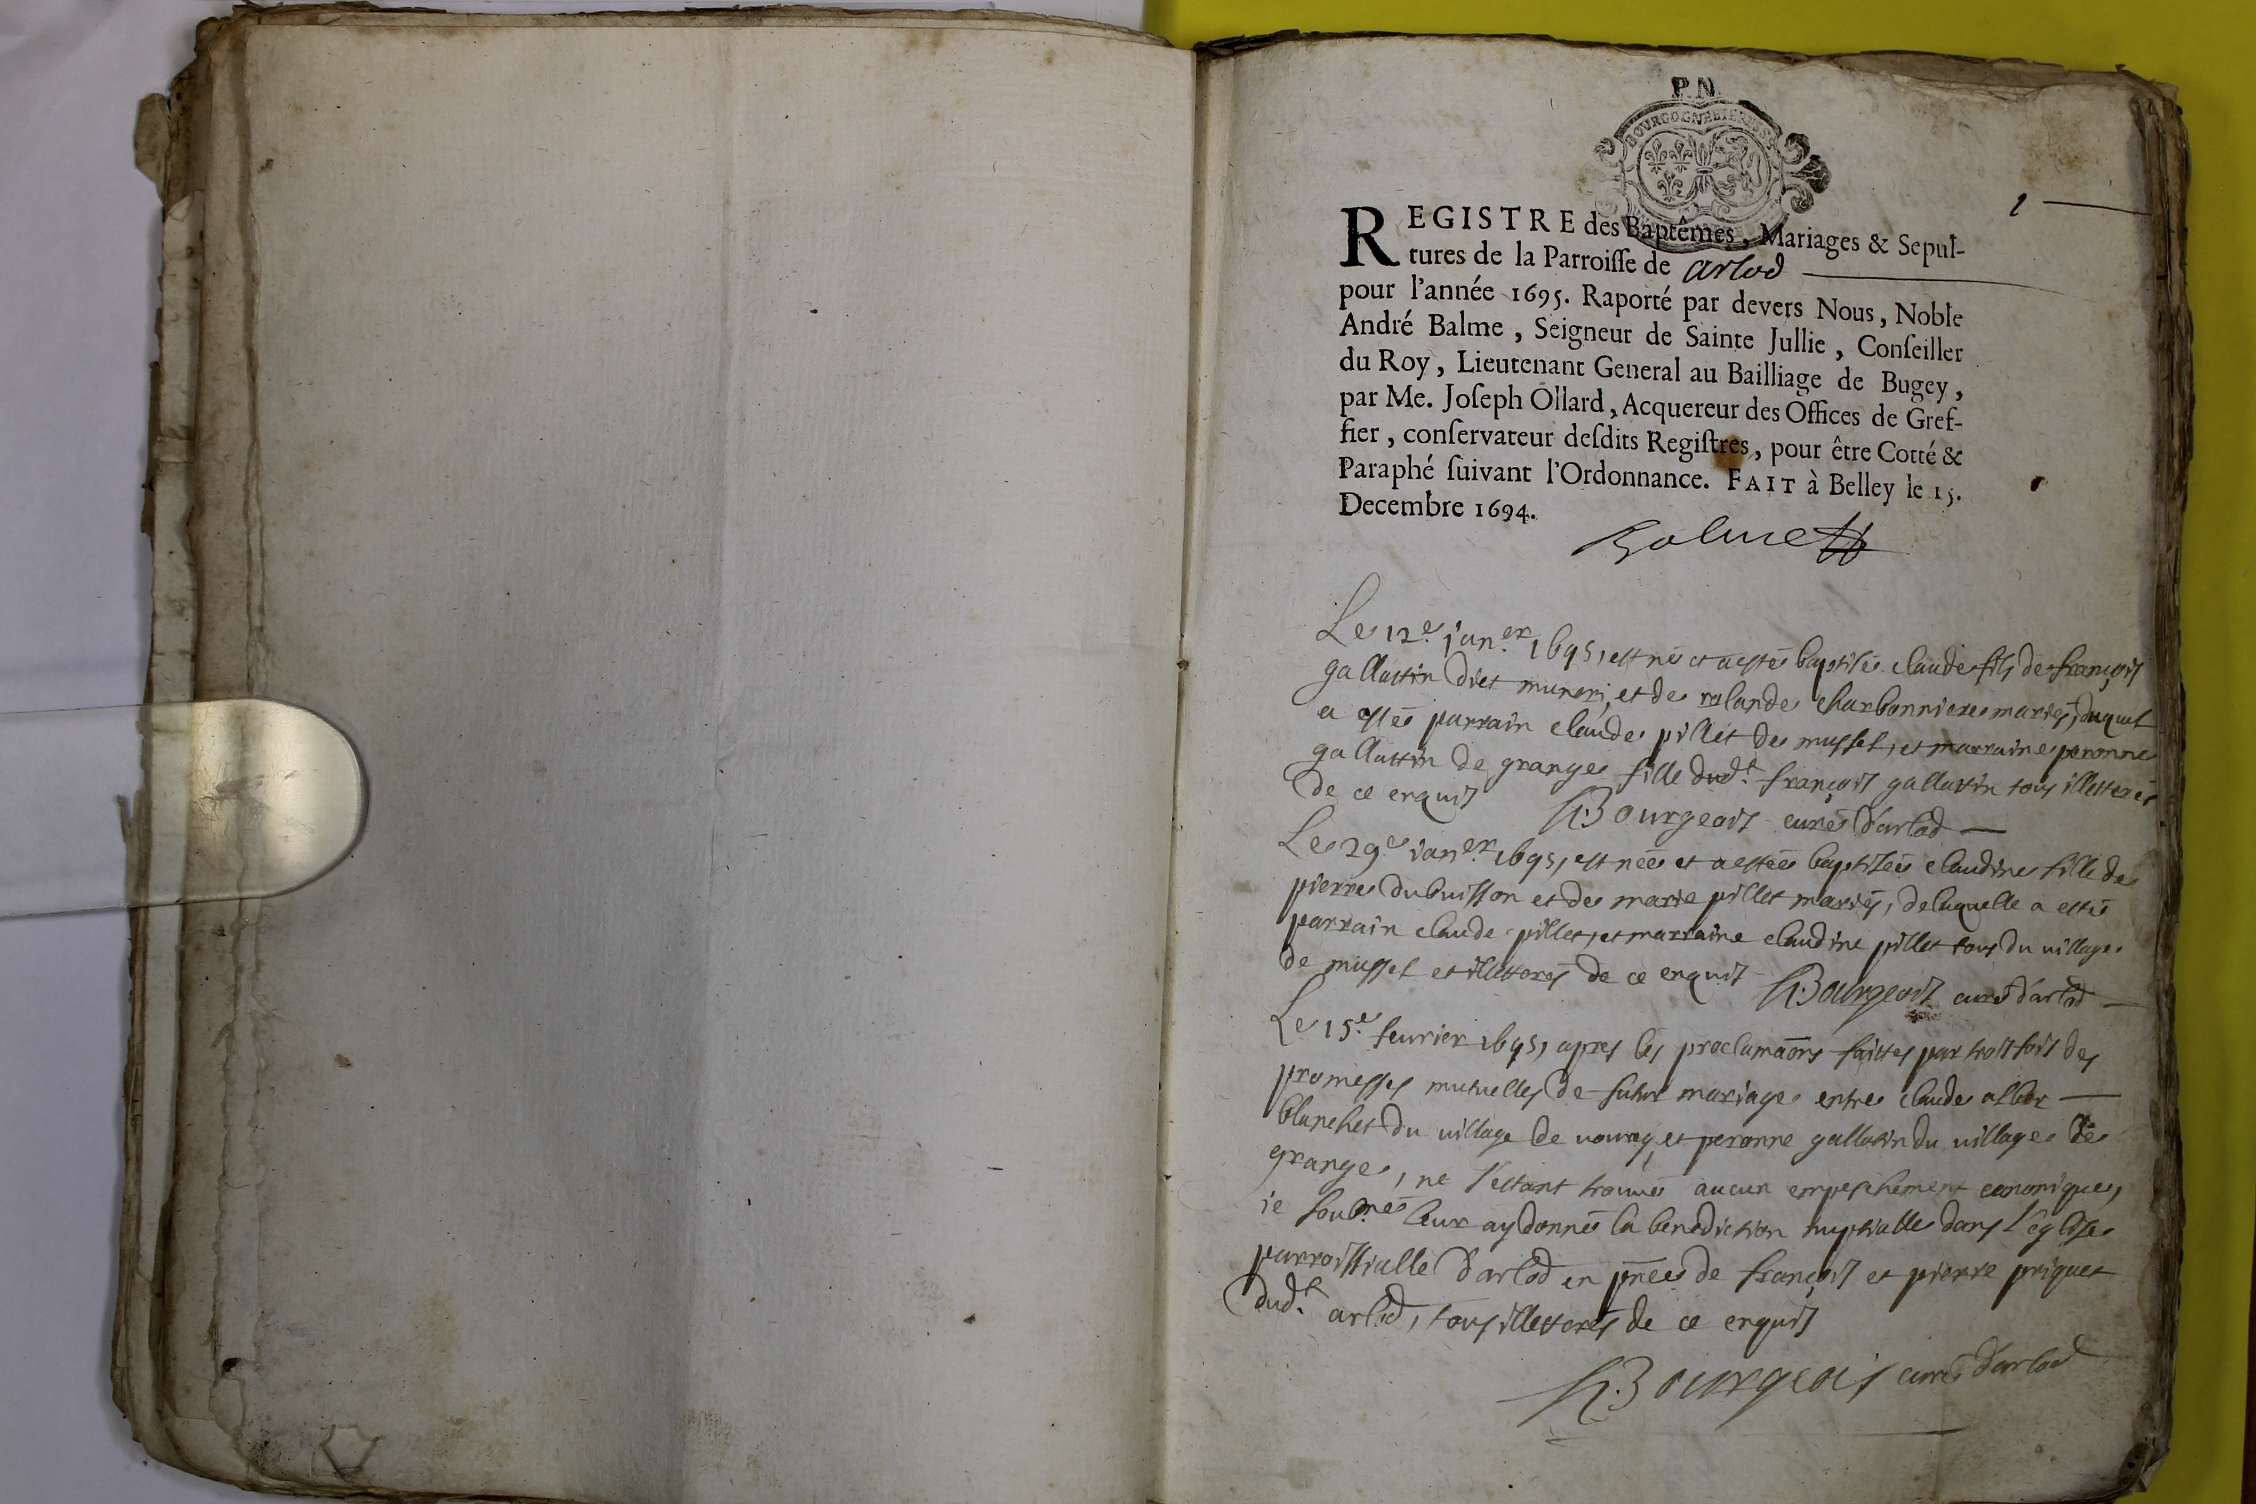 P.N.
BOURGOGNE
1
REGISTRE des Baptêmes, Mariages & Sepul-
tures de la Parroisse de arlod
pour l'année 1695. Raporté par devers Nous, Noble
André Balme, Seigneur de Sainte Jullie, Conseiller
du Roy, Lieutenant General au Bailliage de Bugey,
par Me. Joseph Ollard, Acquereur des Offices de Gref-
fier, conservateur desdits Registres, pour être Cotté &
Paraphé suivant l'Ordonnance. FAIT à Belley le 15.
Decembre 1694.
Balme
Le 12e. janer. 1695, est né et a esté baptisé claude fils de françois
gallattin diet muneri, et de rolande charbonniere mariés, duquel
a esté parrain claude pillet de mussel, et marraine peronne
gallattin de grange fille dudt. françois gallattin tous illetterés
de ce enquis Bourgeois curé d'arlod
Le 29e janer. 1695, est née et a estée baptisée claudine fille de
pierre dubuisson et de marie pillet mariés, de laquelle a esté
parrain claude pillet, et marraine claudine pillet tous du village
de mussel et illetterés de ce enquis Bourgeois curé d'arlod
Le 15e. feurier 1695, apres les proclamaõns faittes par trois fois des
promesses mutuelles de futur mariage entre claude alber
blanchet du village de vouvray, et peronne gallatin du village de
grange, ne s'estant trouué aucun empeschement canonique,
ie soubné. leur ay donné la benediction nuptialle dans l'eglise
parroissialle d'arlod en pñce de françois et pierre priquet
dudt. arlod, tous illetterés de ce enquis
Bourgeois curé d'arlod